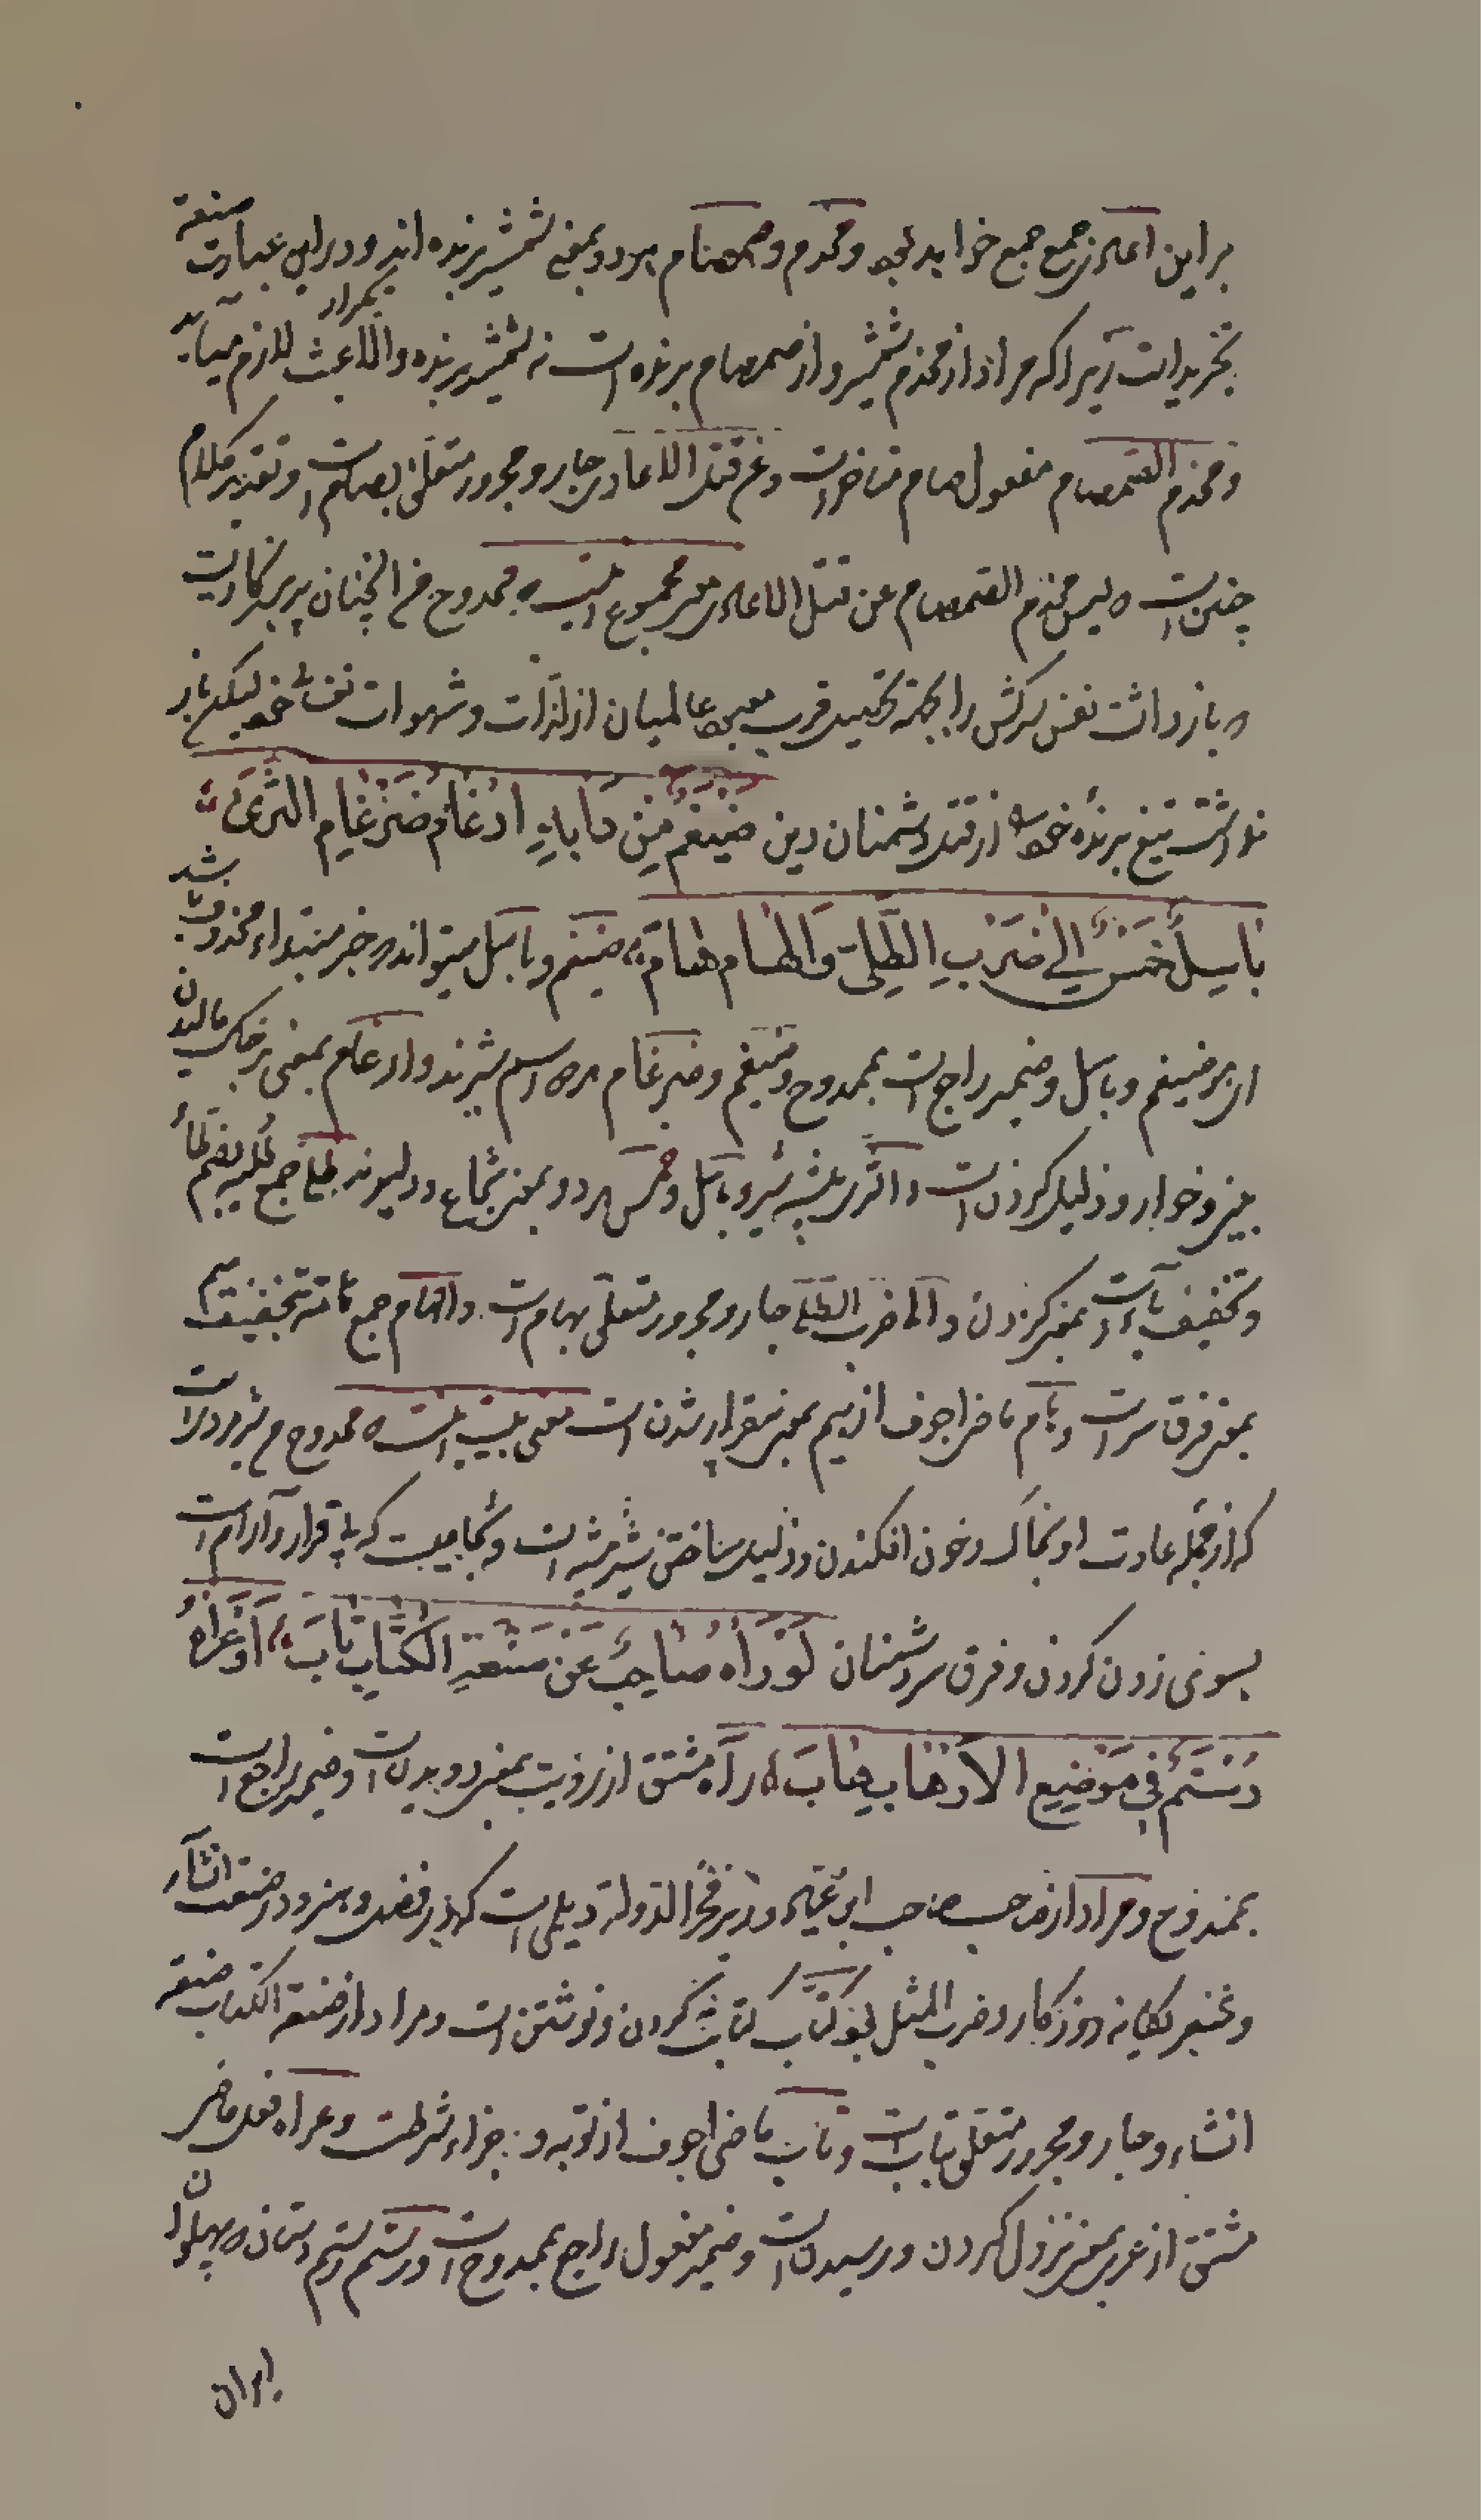 براین اعادی جمع جمع خواهد بود ومخذم وصمصام هردو بمعنی شمشیر برنده اند ودراین عبارت صنعة
تجرید است زیرا که مراد از مخذم شمشیر واز صمصام برنده است نه شمشیر برنده والا عبث تکرار لازم میاید
ومخذم الصمصام مفعول صام متاخراست وعن قتل الاعادی جار ومجرور متعلق بصام است وتقدیر کلام
چنین است ولیس مخذم الصمصام عن قتل الاعادی معنی مجموع اینست که ممدوح من انچنان پرهیزکاریست
که بازداشت نفس سرکش را بجهة تحصیل قرب معبود عالمیان از لذات وشهوات نفسانی خود لیکن باز
نداشت تیغ برنده خود را از قتل دشمنان دین ضَیْغَمٌ مِنْ دَابِهِ ادْغَامُ ضَرْغَامِ الشَّرَی
بَاسِلٌ حَمْسٌ اِلی ضَرْبِ الطُّلَی وَالْهَامِ هَامَ ضیغم وباسل میتواند که خبر مبتداء محذوف باشد
ای هو ضیغم وباسل وضمیر راجع است بممدوح وضیغم وضرغام هردو اسم شیرند وادغام بمعنی برخاک مالیدن
بینی وخوار وذلیل کردن است والثری بیشه شیر وباسل وحمس هردو بمعنی شجاع ودلیرند طلی جمع طلیه بضم طاء
وتخفیف یاء است بمعنی گردن والی ضرب الطلی جار ومجرور متعلق بهام است والهام جمع هامة بتخفیف میم
بمعنی فرق سراست وهام ماضی اجوف از هیم بمعنی بیقرار شدن است معنی بیت اینست که ممدوح من شیردلیراست
که ازجمله عادت او بخاک وخون افکندن وذلیل ساختن شیر بیشه است وشجاعیست که بی قرار وآرام است
بسوی زدن گردن وفرق سر دشمنان لَوْرَاَهُ صَاحِبٌ عَنْ صَنْعَةِ الْکِتَابِ تَابَ اَوْعَرَاهُ
رُسْتَمٌ فِی مَوْضِعِ الْاِرْهَابِ هَابَ رآه مشتق از رؤیت بمعنی دیدن است وضمیر راجع است
بممدوح ومراد از صاحب صاحب ابن عباد وزیر فخر الدولة دیلمی است که در فضل وهنر ودر صنعت انشاء
وتحبیر یگانه روزگار وضرب المثل بود کتاب کتابت کردن ونوشتن است ومراد از صنعة الکتاب صنعة
انشاء وجار ومجرور متعلق بتاب است وتاب ماضی اجوف از توبه و جزاء شرطست وعراه فعل ماضی
مشتق از عرو بمعنی نزول کردن ورسیدن است وضمیر مفعول راجع بممدوح است ورستم رستم دستان که پهلوان
ایران